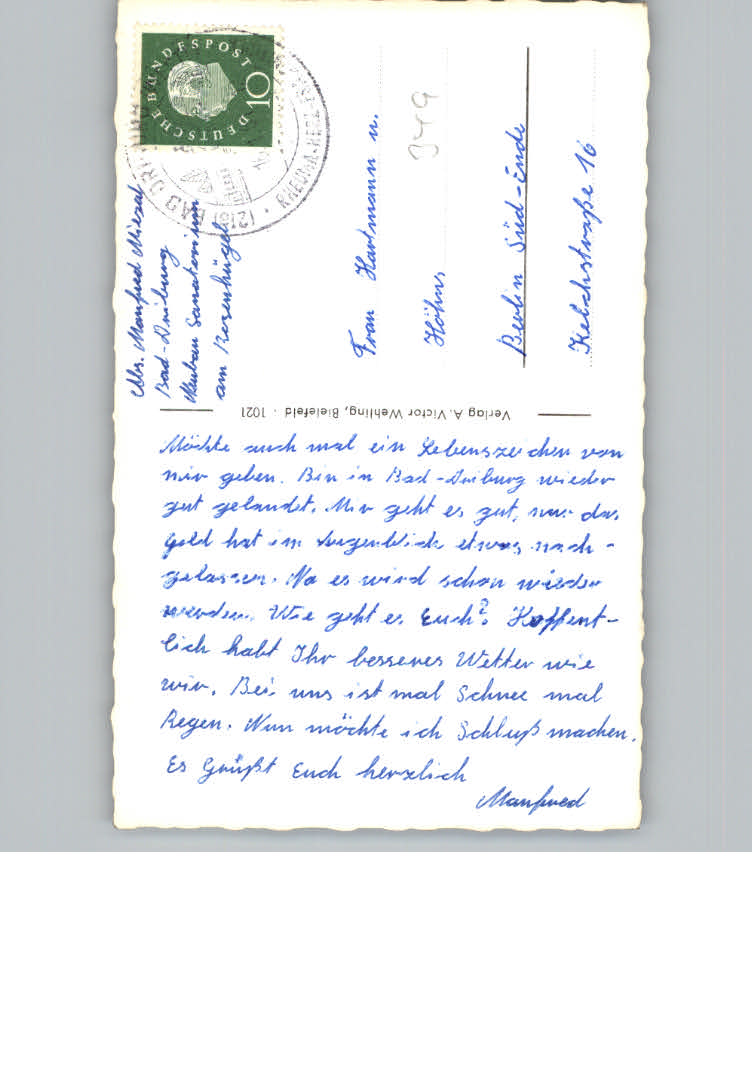 Möchte auch mal ein Lebenszeichen von
mir geben. Bin in Bad-Driburg wieder
gut gelandet. Mir geht es gut, nur das
Geld hat im Augenblick etwas nach-
gelassen. Na es wird schon wieder
werden. Wie geht es Euch? Hoffent-
lich habt Ihr besseres Wetter wie
wir. Bei uns ist mal Schnee mal
Regen. Nun möchte ich Schluß machen.
Es Grüßt Euch herzlich
Manfred
Verlag A. Victor Wehling, Bielefeld · 1021
Abs. Manfred
Bad-Driburg
Neubau Sanatorium
am Rosenhügel
DEUTSCHE BUNDESPOST
10
(21b) BAD DRIBURG
RHEUMA-HERZ-
Frau Hartmann u.
Höhns
349
Berlin Süd-Ende
Kelchstraße 16